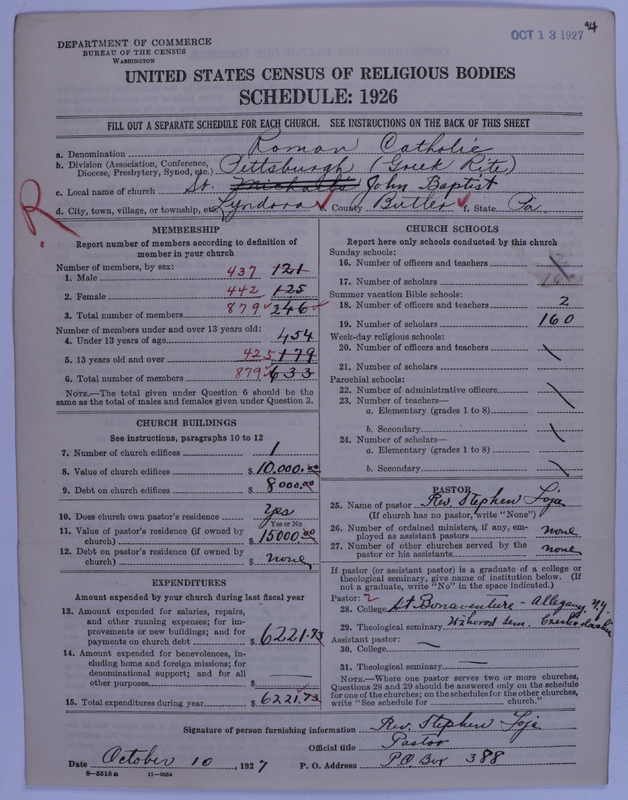 OCT 13 1927
DEPARTMENT OF COMMERCE
BUREAU OF THE CENSUS
WASHINGTON
UNITED STATES CENSUS OF RELIGIOUS BODIES
SCHEDULE: 1926
FILL OUT A SEPARATE SCHEDULE FOR EACH CHURCH. SEE INSTRUCTIONS ON THE BACK OF THIS SHEET
a. Denomination Roman Catholic
b. Division (Association, Conference, Diocese, Presbytery, Synod, etc.) Pittsburgh (Greek Rite)
c. Local name of church St. Michaels John Baptist
d. City, town, village, or township, etc. Lyndora e. County Butler f. State Pa
R
MEMBERSHIP
Report number of members according to definition of
member in your church
Number of members, by sex:
1. Male 437 121
2. Female 442 125
3. Total number of members 879 246
Number of members under and over 13 years old:
4. Under 13 years of age 454
5. 13 years old and over 425 179
6. Total number of members 879 633
NOTE.—The total given under Question 6 should be
same as the total of males and females given under Question 3.
CHURCH BUILDINGS
See instructions, paragraphs 10 to 12
7. Number of church edifices 1
8. Value of church edifices $ 10.000.00
9. Debt on church edifices $ 8000.00
10. Does church own pastor's residence yes
Yes or No
11. Value of pastor's residence (if owned by
church) $ 15000 00
12. Debt on pastor's residence (if owned by
church) $ none
EXPENDITURES
Amount expended by your church during last fiscal year
13. Amount expended for salaries, repairs,
and other running expenses; for im-
provements or new buildings; and for
payments on church debt $ 6221.73
14. Amount expended for benevolences, in-
cluding home and foreign missions; for
denominational support; and for all
other purposes $
15. Total expenditures during year $ 6221.73
CHURCH SCHOOLS
Report here only schools conducted by this church
Sunday schools:
16. Number of officers and teachers
17. Number of scholars
Summer vacation Bible schools:
18. Number of officers and teachers 2
19. Number of scholars 160
Week-day religious schools:
20. Number of officers and teachers
21. Number of scholars
Parochial schools:
22. Number of administrative officers
23. Number of teachers—
a. Elementary (grades 1 to 8)
b. Secondary
24. Number of scholars—
a. Elementary (grades 1 to 8)
b. Secondary
PASTOR
25. Name of pastor Rev. Stephen Loja
(If church has no pastor, write "None")
26. Number of ordained ministers, if any, em-
ployed as assistant pastors none
27. Number of other churches served by the
pastor or his assistants none
If pastor (or assistant pastor) is a graduate of a college or
theological seminary, give name of institution below. (If
not a graduate, write "No" in the space indicated.)
Pastor: 2
28. College St. Bonaventure - Allegany, N.Y.
29. Theological seminary Sem.
Assistant pastor:
30. College —
31. Theological seminary —
NOTE.—Where one pastor serves two or more churches,
Questions 28 and 29 should be answered only on the schedule
for one of the churches; on the schedules for the other churches,
write "See schedule for church."
Signature of person furnishing information Rev. Stephen Loja
Official title Pastor
Date October 10, 1927 P. O. Address P.O. Box 388
8—5518a 11—9054